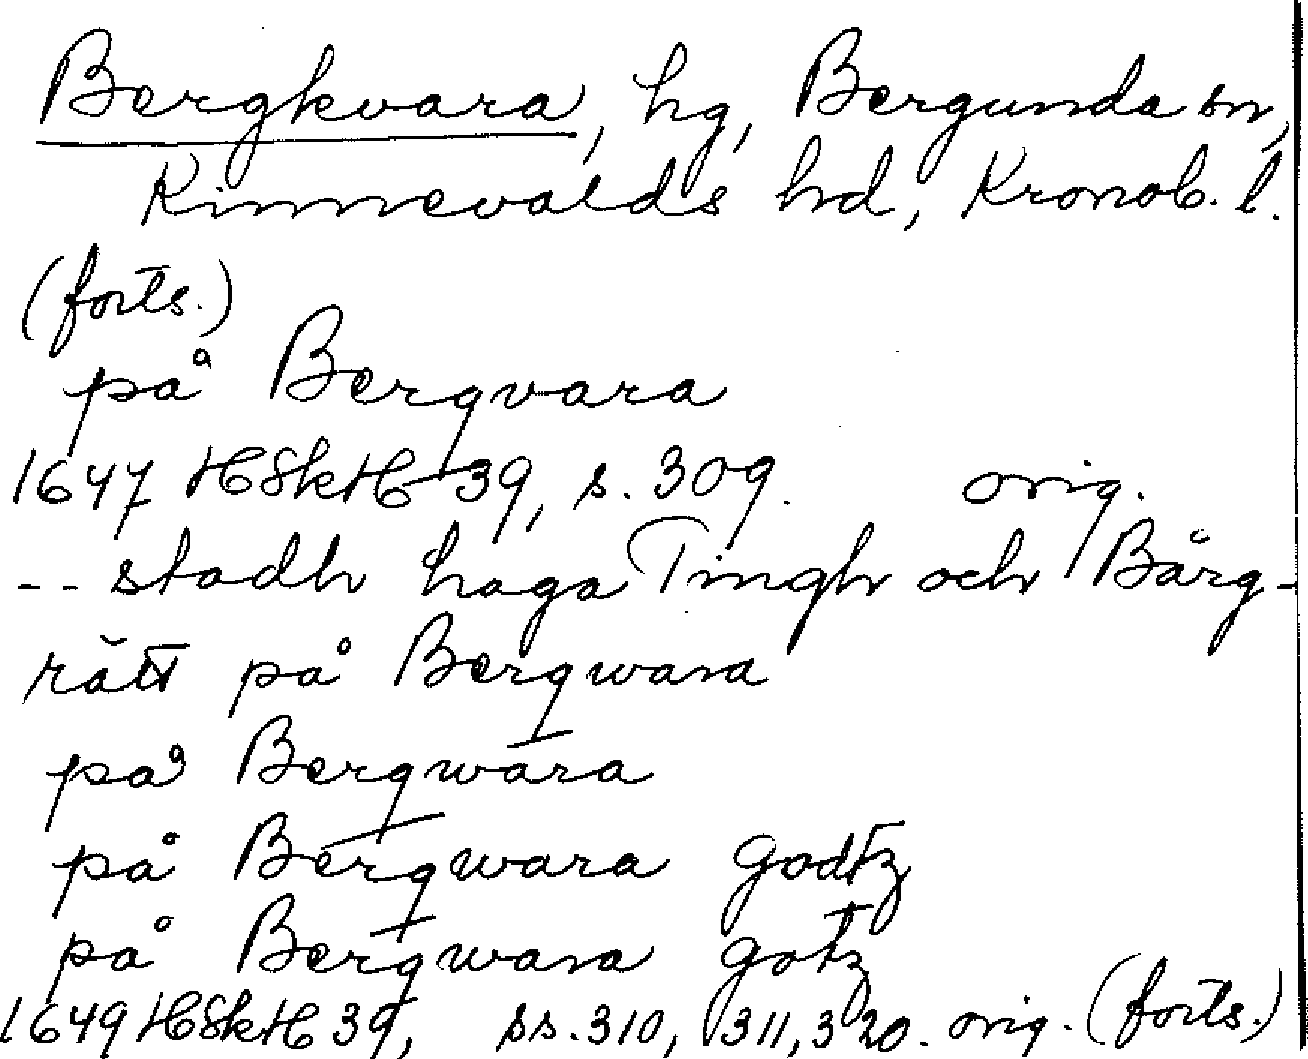 Bergkvara, hg, Bergunda sn,
Kinnevalds hd, Kronob. l.
(forts.)
på Bergqvara
1647 HSkH 39, s. 309. orig.
-- stadh haga Tingh och Bårg-
rått på Bergqwara
på Bergqwara
på Bergqwara godtz
på Bergqwara gotz
1649 HSkH 39, ss. 310, 311, 320. orig. (forts.)